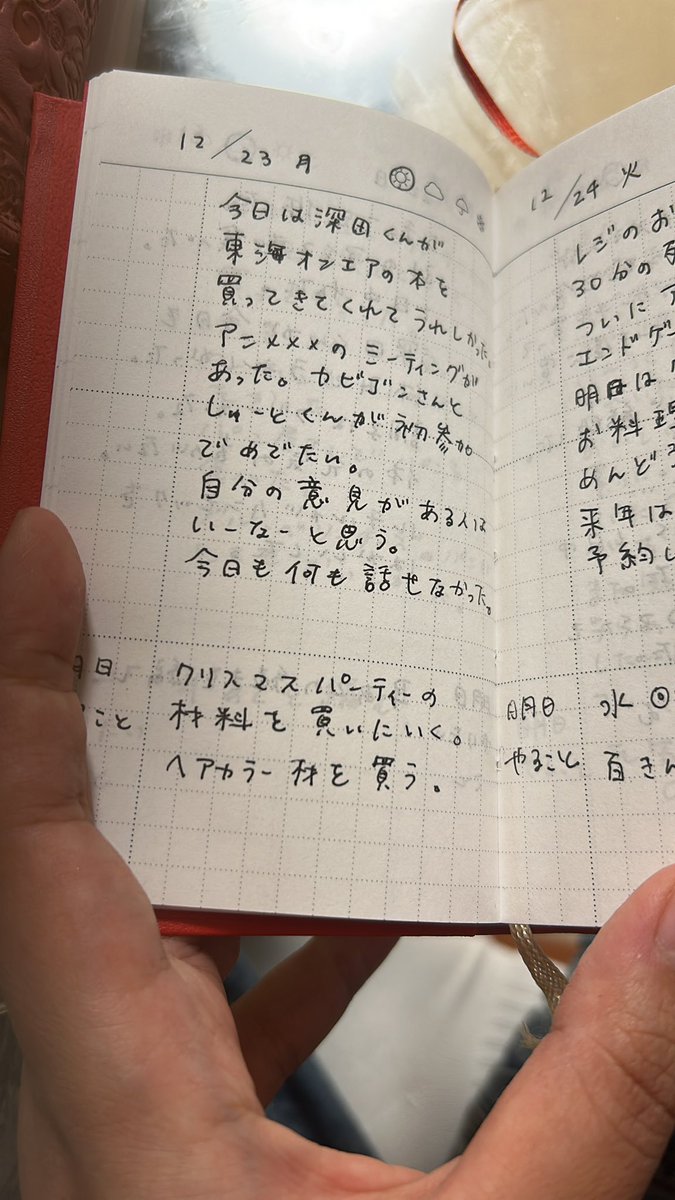 12/23 月
今日は深田くんが
東海オンエアの本を
買ってきてくれてうれしかった。
アニメxxのミーティングが
あった。カビゴンさんと
しゅーとくんが初参加
でめでたい。
自分の意見がある人は
いーなーと思う。
今日も何も話せなかった。
月日
こと
クリスマスパーティーの
材料を買いにいく。
ヘアカラー材を買う。
12/24 火
レジのお
30分の
ついに
エンドゲー
明日は
お料理
めんど
来年は
予約し
明日 水
やること 百きん